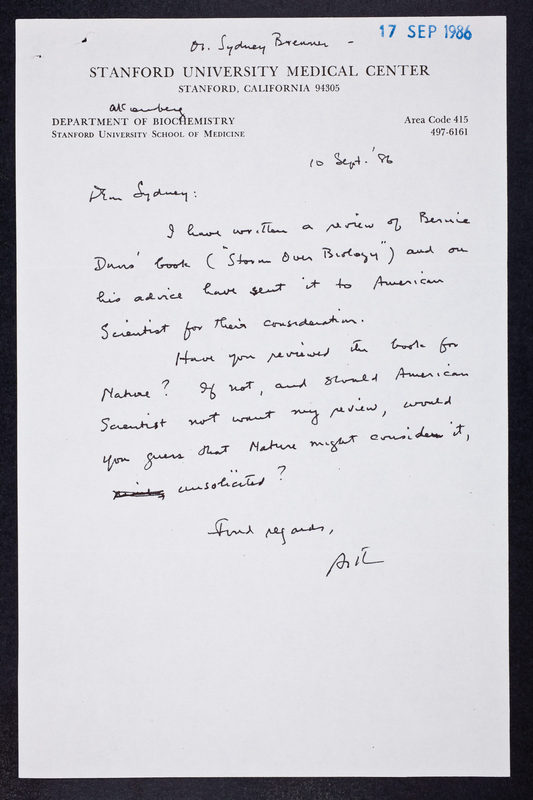 17 SEP 1986
Dr. Sydney Brenner -
STANFORD UNIVERSITY MEDICAL CENTER
STANFORD, CALIFORNIA 94305
A Kornberg
DEPARTMENT OF BIOCHEMISTRY
STANFORD UNIVERSITY SCHOOL OF MEDICINE
Area Code 415
497-6161
10 Sept. '86
Dear Sydney:
I have written a review of Bernie
Davis' book ("Storm Over Biology") and on
his advice have sent it to American
Scientist for their consideration.
Have you reviewed the book for
Nature? If not, and should American
Scientist not want my review, would
you guess that Nature might consider it,
unsolicited?
Fond regards,
Art